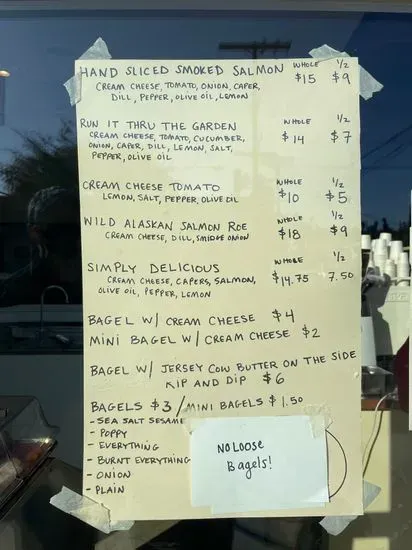 HAND SLICED SMOKED SALMON WHOLE $15 1/2 $9
CREAM CHEESE, TOMATO, ONION, CAPER,
DILL, PEPPER, OLIVE OIL, LEMON
RUN IT THRU THE GARDEN WHOLE $14 1/2 $7
CREAM CHEESE, TOMATO, CUCUMBER,
ONION, CAPER, DILL, LEMON, SALT,
PEPPER, OLIVE OIL
CREAM CHEESE TOMATO WHOLE $10 1/2 $5
LEMON, SALT, PEPPER, OLIVE OIL
WILD ALASKAN SALMON ROE WHOLE $18 1/2 $9
CREAM CHEESE, DILL, SMIDGE ONION
SIMPLY DELICIOUS WHOLE $14.75 1/2 7.50
CREAM CHEESE, CAPERS, SALMON,
OLIVE OIL, PEPPER, LEMON
BAGEL W/ CREAM CHEESE $4
MINI BAGEL W/ CREAM CHEESE $2
BAGEL W/ JERSEY COW BUTTER ON THE SIDE
RIP AND DIP $6
BAGELS $3 / MINI BAGELS $1.50
- SEA SALT SESAME
- POPPY
- EVERYTHING
- BURNT EVERYTHING
- ONION
- PLAIN
NO LOOSE
Bagels!